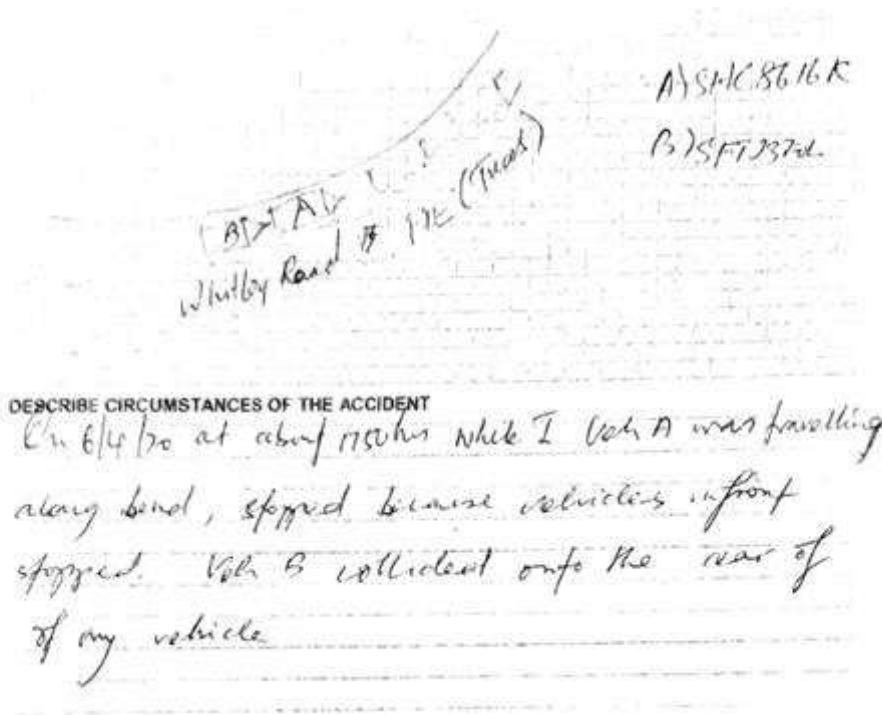 A) SHC8616K
B) SFT
B A
Whitley Road PIE (Tuas)
DESCRIBE CIRCUMSTANCES OF THE ACCIDENT
On 6/4/20 at about 1750hrs while I Veh A was travelling
along bend, stopped because vehicles infront
stopped. Veh B collided onto the rear of
of my vehicle